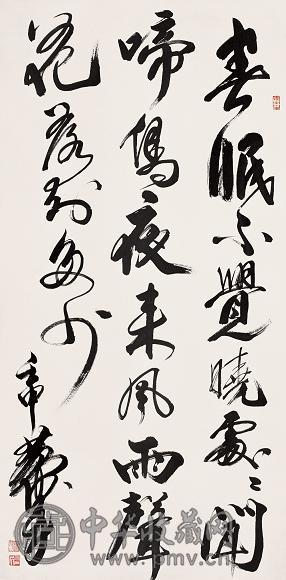 春眠不覺曉處〻聞
啼鳥夜来風雨聲
花落知多少
中华收藏网
www.pmv.cn